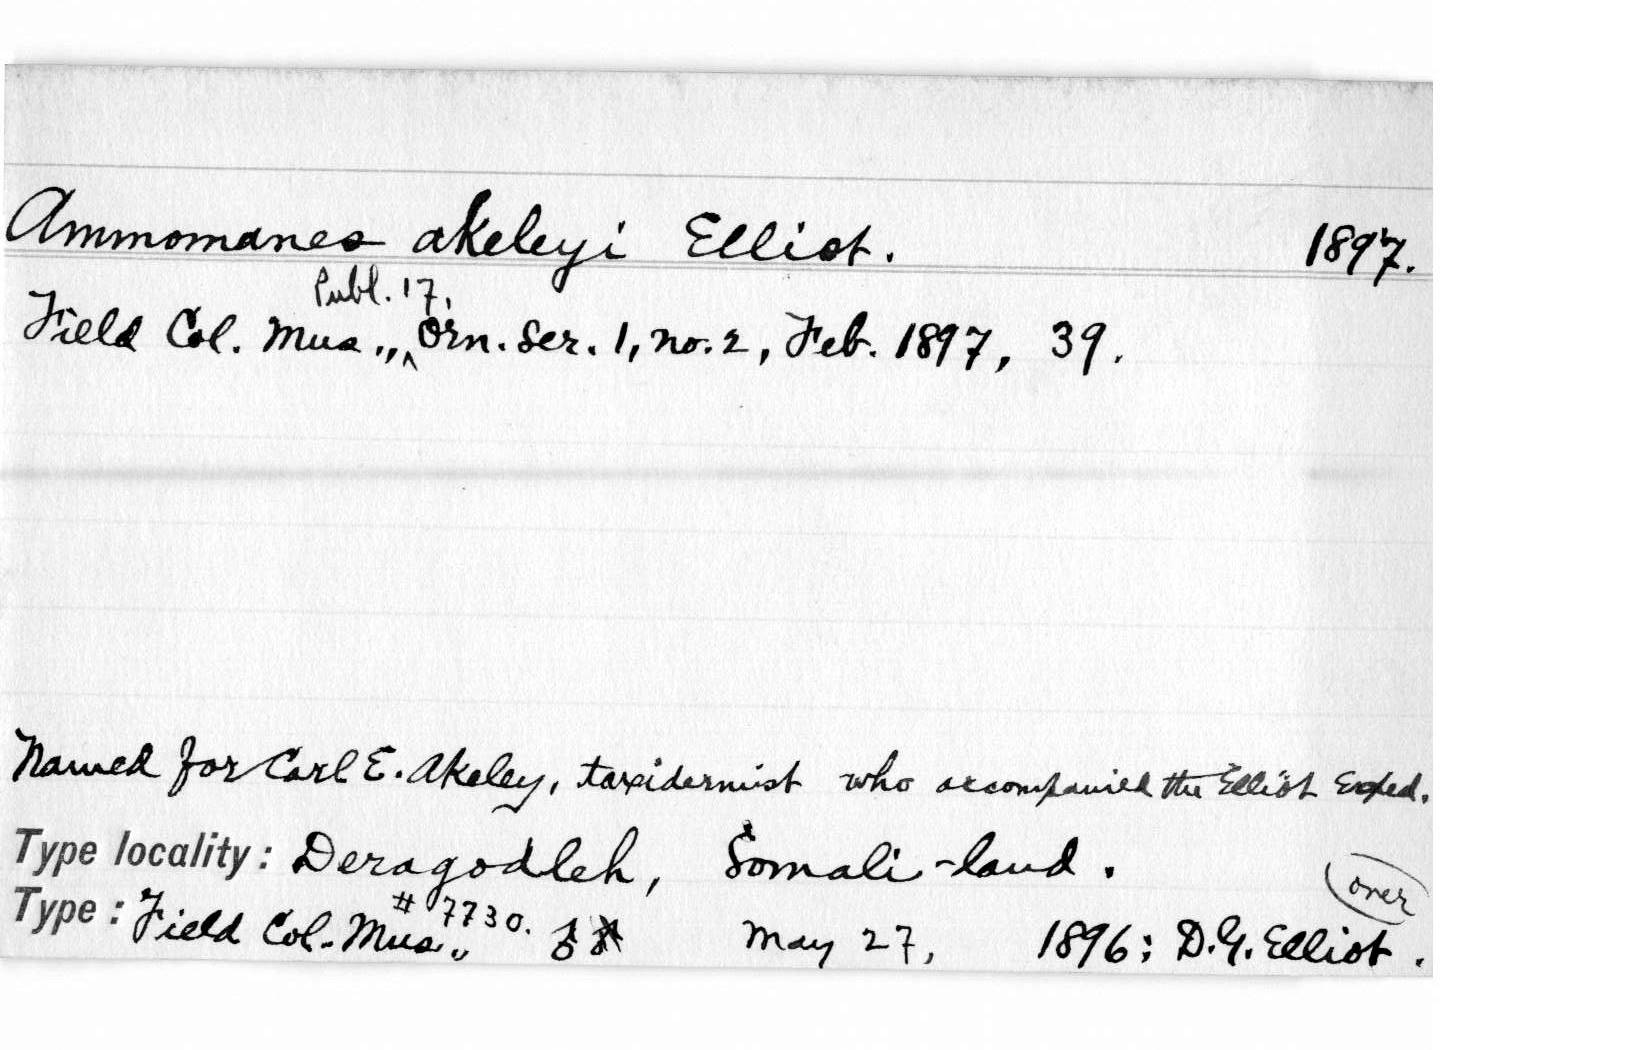 Ammomanes akeleyi Elliot. 1897.
Publ. 17,
Field Col. Mus., Orn. Ser. 1, no. 2, Feb. 1897, 39.
Named for Carl E. Akeley, taxidermist who accompanied the Elliot Exped.
Type locality: Deragodleh, Somali-land.
over
Type: Field Col. Mus., # 7730. ♂ May 27, 1896; D.G. Elliot.